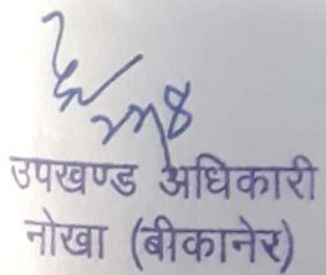 उपखण्ड अधिकारी
नोखा (बीकानेर)